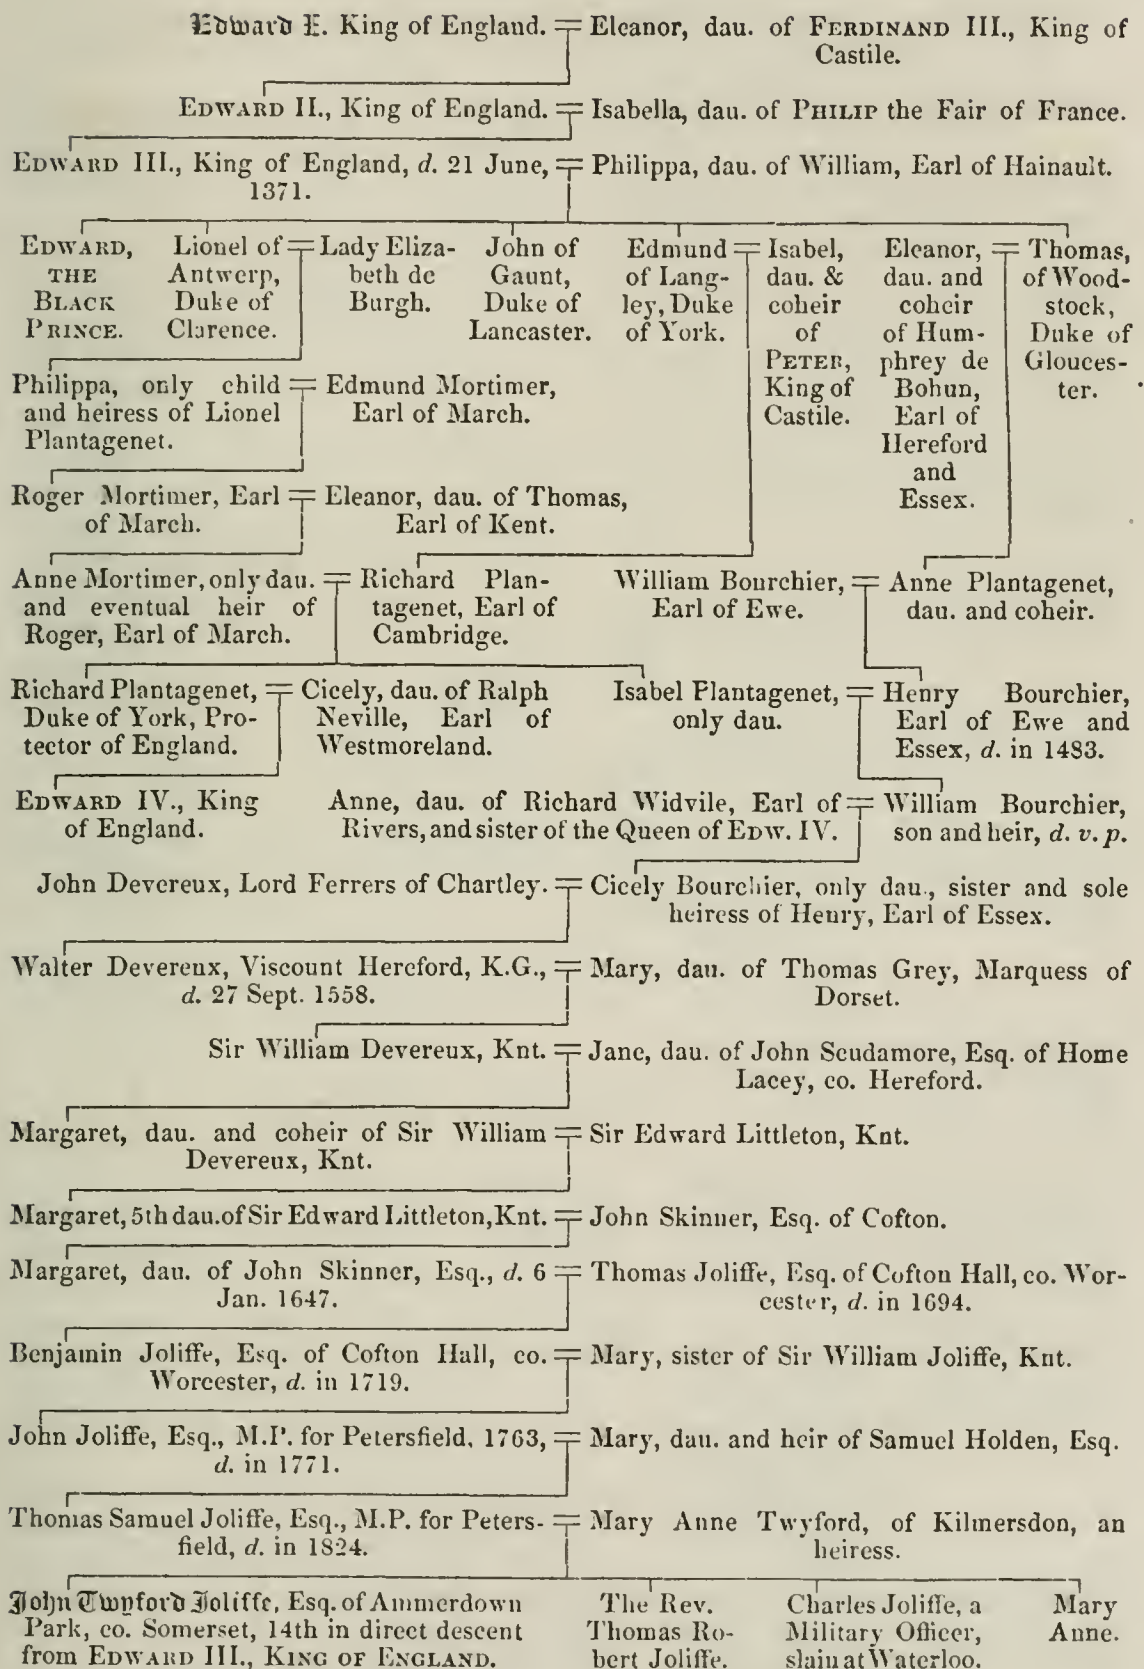 Edward I. King of England. = Eleanor, dau. of FERDINAND III., King of
Castile.
EDWARD II., King of England. = Isabella, dau. of PHILIP the Fair of France.
EDWARD III., King of England, d. 21 June, = Philippa, dau. of William, Earl of Hainault.
1371.
EDWARD,
THE
BLACK
PRINCE.
Lionel of =
Antwerp,
Duke of
Clarence.
Lady Eliza-
beth de
Burgh.
John of
Gaunt,
Duke of
Lancaster.
Edmund =
of Lang-
ley, Duke
of York.
Isabel,
dau. &
coheir
of
PETER,
King of
Castile.
Eleanor, =
dau. and
coheir
of Hum-
phrey de
Bohun,
Earl of
Hereford
and
Essex.
Thomas,
of Wood-
stock,
Duke of
Glouces-
ter.
Philippa, only child =
and heiress of Lionel
Plantagenet.
Edmund Mortimer,
Earl of March.
Roger Mortimer, Earl =
of March.
Eleanor, dau. of Thomas,
Earl of Kent.
Anne Mortimer, only dau. =
and eventual heir of
Roger, Earl of March.
Richard Plan-
tagenet, Earl of
Cambridge.
William Bourchier, =
Earl of Ewe.
Anne Plantagenet,
dau. and coheir.
Richard Plantagenet, =
Duke of York, Pro-
tector of England.
Cicely, dau. of Ralph
Neville, Earl of
Westmoreland.
Isabel Plantagenet, =
only dau.
Henry Bourchier,
Earl of Ewe and
Essex, d. in 1483.
EDWARD IV., King
of England.
Anne, dau. of Richard Widvile, Earl of =
Rivers, and sister of the Queen of EDW. IV.
William Bourchier,
son and heir, d. v. p.
John Devereux, Lord Ferrers of Chartley. = Cicely Bourchier, only dau., sister and sole
heiress of Henry, Earl of Essex.
Walter Devereux, Viscount Hereford, K.G., =
d. 27 Sept. 1558.
Mary, dau. of Thomas Grey, Marquess of
Dorset.
Sir William Devereux, Knt. = Jane, dau. of John Scudamore, Esq. of Home
Lacey, co. Hereford.
Margaret, dau. and coheir of Sir William =
Devereux, Knt.
Sir Edward Littleton, Knt.
Margaret, 5th dau. of Sir Edward Littleton, Knt. = John Skinner, Esq. of Cofton.
Margaret, dau. of John Skinner, Esq., d. 6 =
Jan. 1647.
Thomas Joliffe, Esq. of Cofton Hall, co. Wor-
cester, d. in 1694.
Benjamin Joliffe, Esq. of Cofton Hall, co. =
Worcester, d. in 1719.
Mary, sister of Sir William Joliffe, Knt.
John Joliffe, Esq., M.P. for Petersfield, 1763, =
d. in 1771.
Mary, dau. and heir of Samuel Holden, Esq.
Thomas Samuel Joliffe, Esq., M.P. for Peters- =
field, d. in 1824.
Mary Anne Twyford, of Kilmersdon, an
heiress.
John Twyford Joliffe, Esq. of Ammerdown
Park, co. Somerset, 14th in direct descent
from EDWARD III., KING OF ENGLAND.
The Rev.
Thomas Ro-
bert Joliffe.
Charles Joliffe, a
Military Officer,
slain at Waterloo.
Mary
Anne.